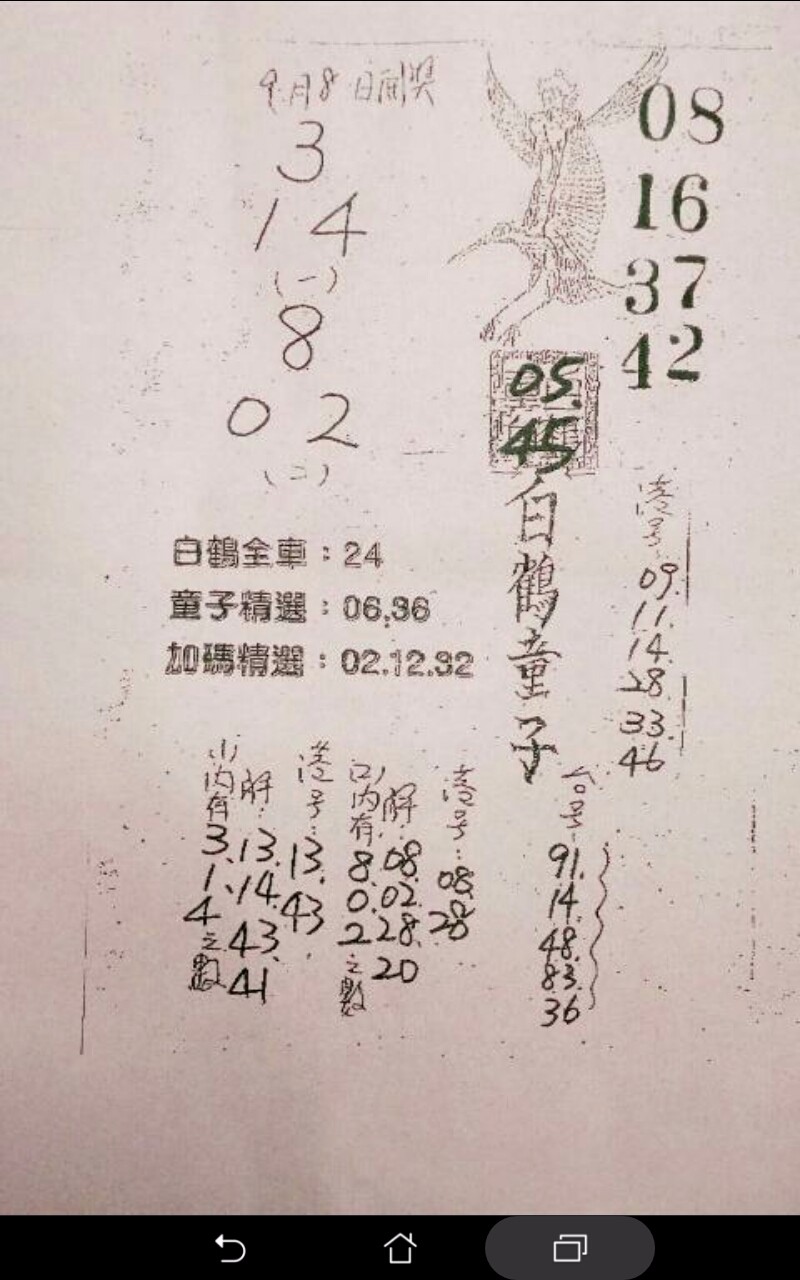 9月8日開獎
3
1 4
(一)
8
0 2
(二)
08
16
37
42
05.
45
白鶴童子
港号:
09.
11.
14.
28.
33.
46
白鶴全車：24
童子精選：06.36
加碼精選：02.12.32
(1)內有3.1.4之數
解:13.14.43.41
港号:13.43
(2)內有:8.0.2之數
解:08.02.28.20
港号:08.28
台号:
91.
14.
48.
83.
36